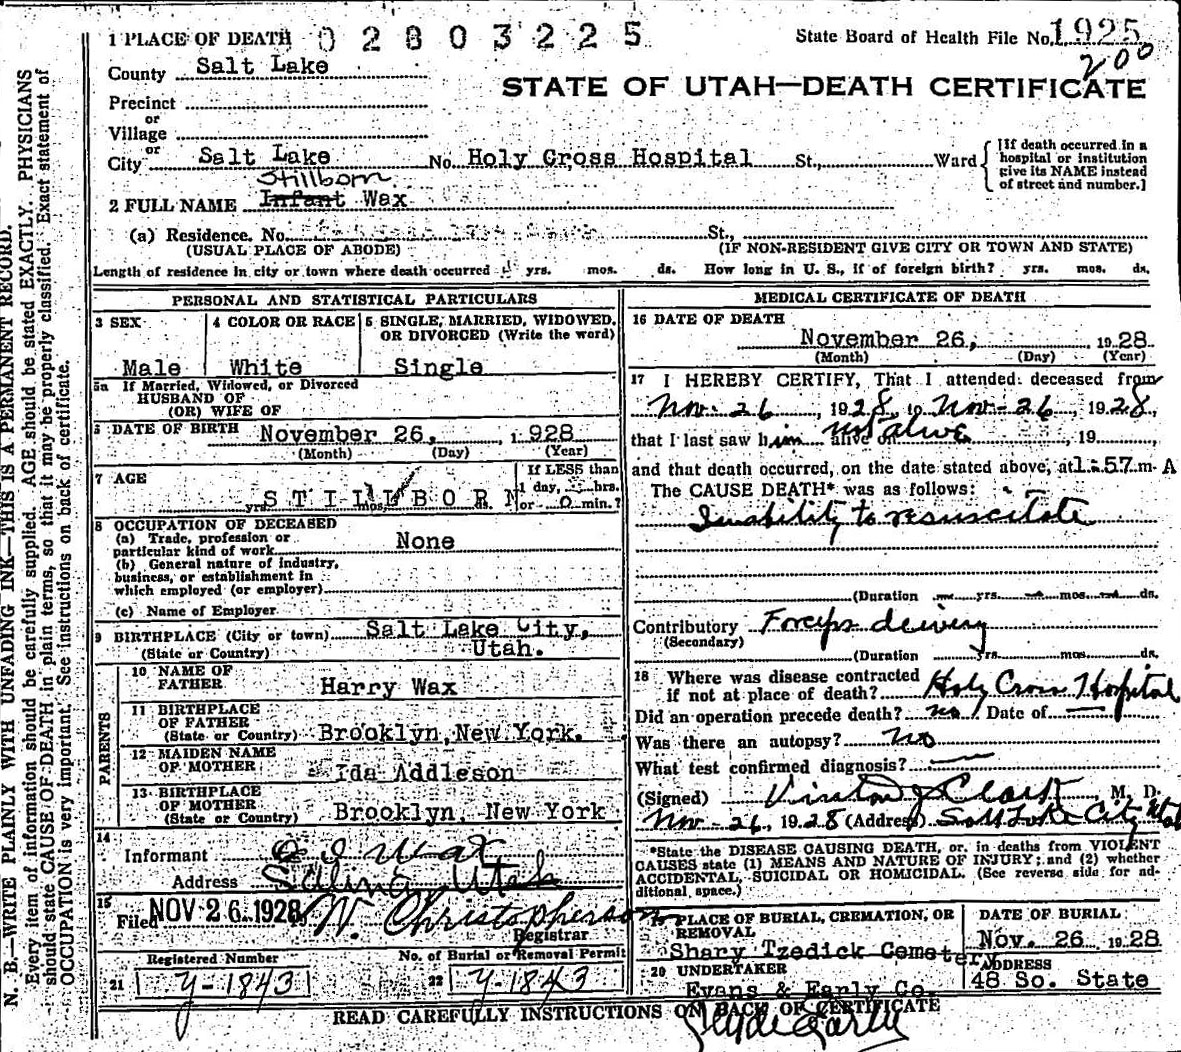 1 PLACE OF DEATH 0 2 8 0 3 2 2 5 State Board of Health File No. 1925
200
County Salt Lake
STATE OF UTAH—DEATH CERTIFICATE
Precinct
or
Village
or
City Salt Lake No. Holy Cross Hospital St., Ward
[If death occurred in a
hospital or institution
give its NAME instead
of street and number.]
Stillborn
2 FULL NAME Infant Wax
(a) Residence. No. St.,
(USUAL PLACE OF ABODE) (IF NON-RESIDENT GIVE CITY OR TOWN AND STATE)
Length of residence in city or town where death occurred yrs. mos. ds. How long in U. S., if of foreign birth? yrs. mos. ds.
PERSONAL AND STATISTICAL PARTICULARS
3 SEX 4 COLOR OR RACE 5 SINGLE, MARRIED, WIDOWED,
OR DIVORCED (Write the word)
Male White Single
5a If Married, Widowed, or Divorced
HUSBAND OF
(OR) WIFE OF
DATE OF BIRTH November 26, 1928
(Month) (Day) (Year)
7 AGE If LESS than
1 day, hrs.
STILLBORN yrs. mos. ds. or 0 min.?
8 OCCUPATION OF DECEASED
(a) Trade, profession or
particular kind of work None
(b) General nature of industry,
business, or establishment in
which employed (or employer)
(c) Name of Employer
9 BIRTHPLACE (City or town) Salt Lake City,
(State or Country) Utah.
PARENTS
10 NAME OF
FATHER Harry Wax
11 BIRTHPLACE
OF FATHER
(State or Country) Brooklyn, New York.
12 MAIDEN NAME
OF MOTHER Ida Addleson
13 BIRTHPLACE
OF MOTHER
(State or Country) Brooklyn, New York
14
Informant Wax
Address Salina, Utah
15
Filed NOV 26 1928 W. Christopherson
Registrar
Registered Number No. of Burial or Removal Permit
21 y-1843 22 y-1843
MEDICAL CERTIFICATE OF DEATH
16 DATE OF DEATH
November 26, 1928
(Month) (Day) (Year)
17 I HEREBY CERTIFY, That I attended deceased from
Nov. 26, 1928, to Nov-26, 1928,
that I last saw him alive on not alive, 19
and that death occurred, on the date stated above, at 1:57 m. A
The CAUSE DEATH* was as follows:
Inability to resuscitate
(Duration yrs. mos. ds.
Contributory Forceps delivery
(Secondary)
(Duration yrs. mos. ds.
18 Where was disease contracted
if not at place of death? Holy Cross Hospital
Did an operation precede death? no Date of —
Was there an autopsy? no
What test confirmed diagnosis? —
(Signed) Vinton J Clark, M. D.
Nov-26, 1928 (Address) Salt Lake City Utah
*State the DISEASE CAUSING DEATH, or, in deaths from VIOLENT
CAUSES state (1) MEANS AND NATURE OF INJURY; and (2) whether
ACCIDENTAL, SUICIDAL OR HOMICIDAL. (See reverse side for ad-
ditional space.)
PLACE OF BURIAL, CREMATION, OR
REMOVAL
Shary Tzedick Cemetery
DATE OF BURIAL
Nov. 26 1928
20 UNDERTAKER
Evans & Early Co.
ADDRESS
48 So. State
READ CAREFULLY INSTRUCTIONS ON BACK OF CERTIFICATE
N. B.—WRITE PLAINLY WITH UNFADING INK—THIS IS A PERMANENT RECORD.
Every item of information should be carefully supplied. AGE should be stated EXACTLY. PHYSICIANS
should state CAUSE OF DEATH in plain terms, so that it may be properly classified. Exact statement of
OCCUPATION is very important. See instructions on back of certificate.